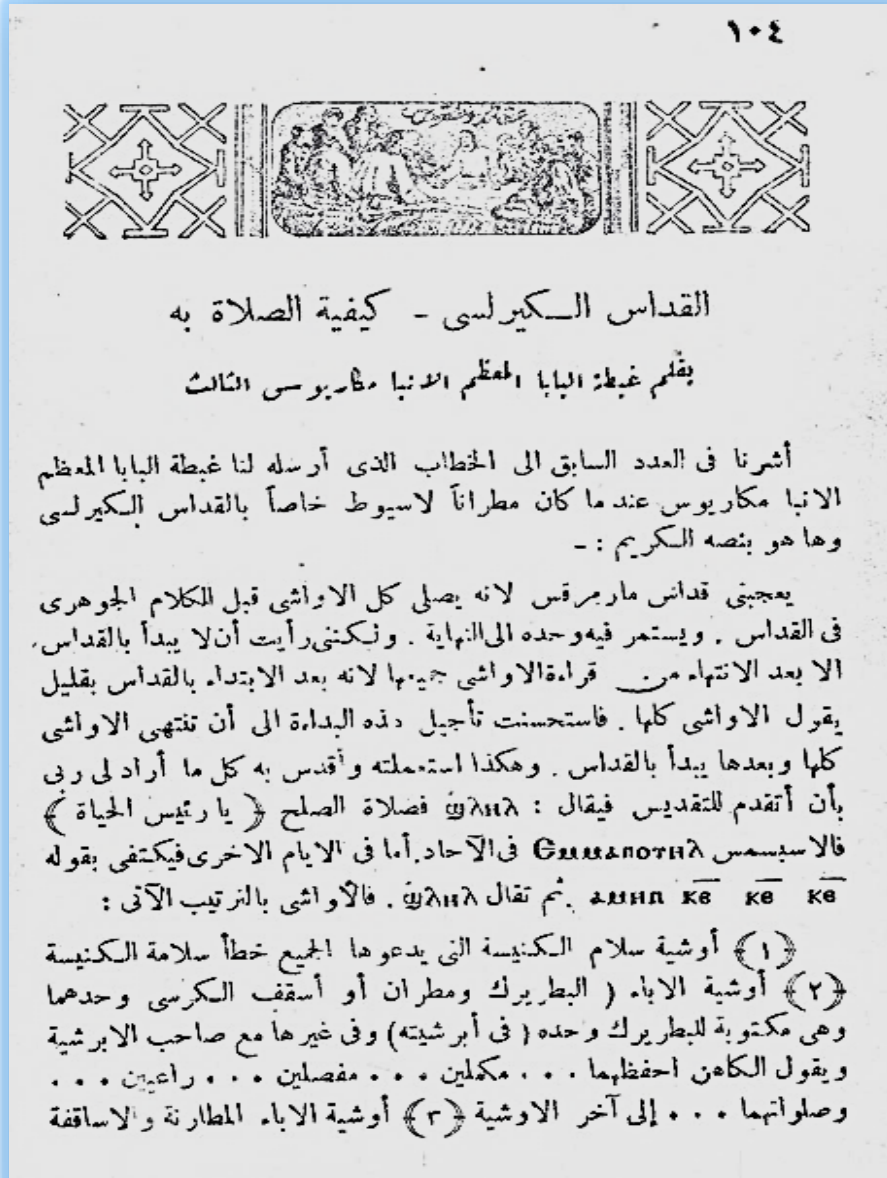 ١٠٤
القداس الكيرلسى - كيفية الصلاة به
بقلم غبطة البابا المعظم الانبا مكاريوس الثالث
أشرنا فى العدد السابق الى الخطاب الذى أرسله لنا غبطة البابا المعظم
الانبا مكاريوس عند ما كان مطراناً لاسيوط خاصاً بالقداس الكيرلسى
وها هو بنصه الكريم : -
يعجبنى قداس مارمرقس لانه يصلى كل الاواشى قبل الكلام الجوهرى
فى القداس . ويستمر فيه وحده الى النهاية . ولكننى رأيت أن لا يبدأ بالقداس
الا بعد الانتهاء من قراءة الاواشى جميعها لانه بعد الابتداء بالقداس بقليل
يقول الاواشى كلها . فاستحسنت تأجيل هذه البداءة الى أن تنتهى الاواشى
كلها وبعدها يبدأ بالقداس . وهكذا استعملته وأقدس به كل ما أراد لى ربى
بأن أتقدم للتقديس فيقال : ϣⲗⲏⲗ فصلاة الصلح ﴿ يا رئيس الحياة ﴾
فالاسبسمس Ⲉⲙⲙⲁⲛⲟⲩⲏⲗ فى الآحاد. أما فى الايام الاخرى فيكتفى بقوله
ⲁⲙⲏⲛ ⲕⲉ ⲕⲉ ⲕⲉ . ثم تقال ϣⲗⲏⲗ . فالأواشى بالترتيب الآتى :
﴿١﴾ أوشية سلام الكنيسة التى يدعوها الجميع خطأ سلامة الكنيسة
﴿٢﴾ أوشية الاباء ( البطريرك ومطران أو أسقف الكرسى وحدهما
وهى مكتوبة للبطريرك وحده ( فى أبرشيته) وفى غيرها مع صاحب الابرشية
ويقول الكاهن احفظهما . . . مكملين . . . مفصلين . . . راعيين . . .
وصلواتهما . . . إلى آخر الاوشية ﴿٣﴾ أوشية الاباء المطارنة والاساقفة